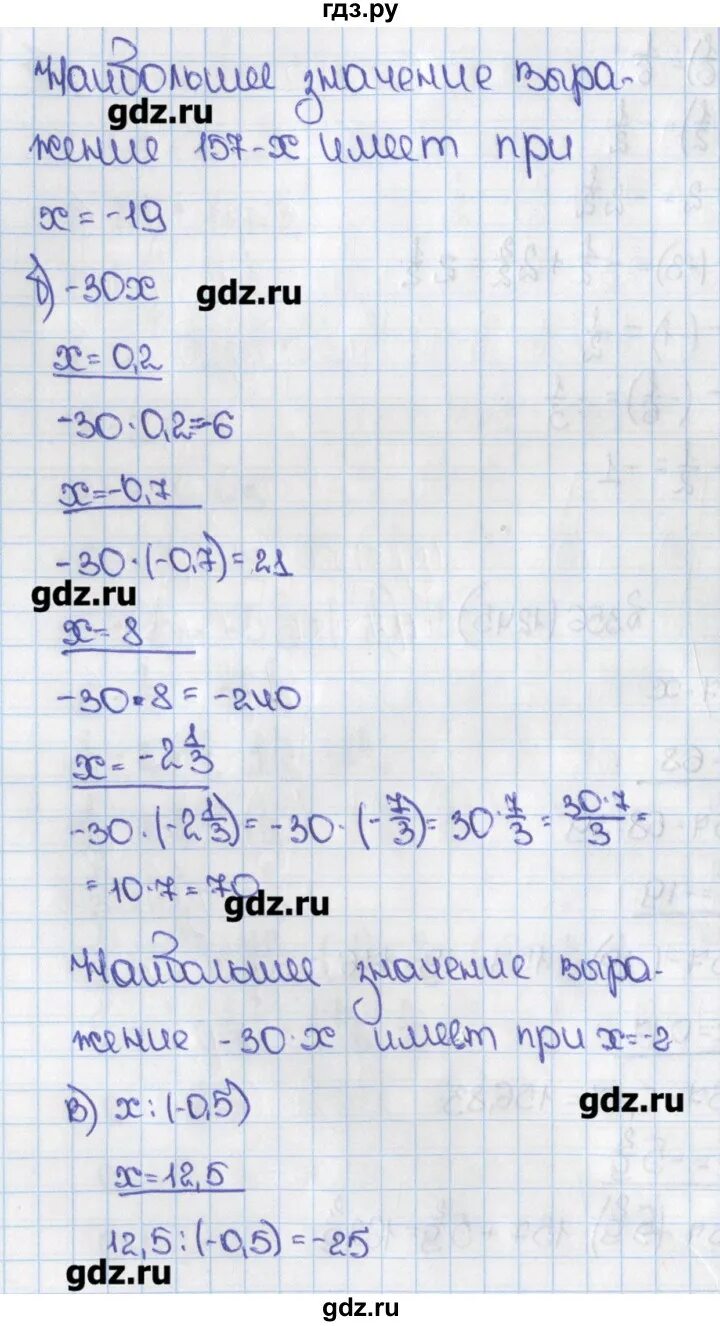 гдз.ру
Наибольшее значение выра-
gdz.ru
жение 157-x имеет при
x = -19
б) -30x
gdz.ru
x = 0,2
-30·0,2=-6
x=-0,7
-30·(-0,7)=21
gdz.ru
x=8
-30·8 = -240
x= -2 1/3
-30·(-2 1/3)= -30·(-7/3)= 30·7/3 = 30·7/3 =
= 10·7 = 70
gdz.ru
Наибольшее значение выра-
жение -30·x имеет при x=-2
в) x:(-0,5)
gdz.ru
x=12,5
12,5:(-0,5)=-25
gdz.ru
gdz.ru